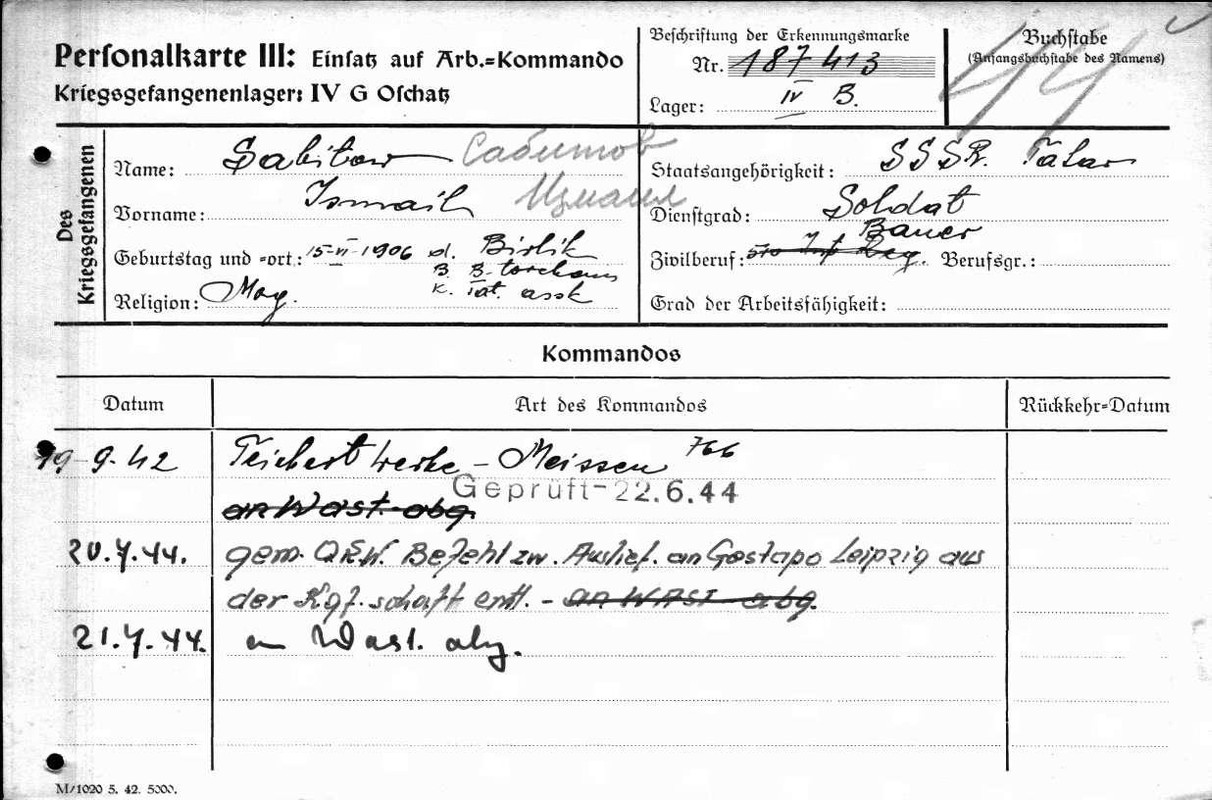 Personalkarte III: Einsatz auf Arb.=Kommando
Kriegsgefangenenlager: IV G Oschatz
Beschriftung der Erkennungsmarke
Nr. 187413
Lager: IV B.
Buchstabe
(Anfangsbuchstabe des Namens)
44
Des Kriegsgefangenen
Name: Sabitow Сабитов
Vorname: Ismail Измаил
Geburtstag und =ort: 15-VI-1906 d. Birlik
B. B-torchaus
K. Tat. assk
Religion: Mog.
Staatsangehörigkeit: SSSR. Tatar
Dienstgrad: Soldat
Bauer
Zivilberuf: 570 Inf Reg. Berufsgr.:
Grad der Arbeitsfähigkeit:
Kommandos
Datum Art des Kommandos Rückkehr=Datum
19-9-42 Teichert werke - Meissen 766
Geprüft-22.6.44
an Wast. abg.
20.7.44. gem. OKW. Befehl zw. Auslief. an Gestapo Leipzig aus
der Kgf.schaft entl. - an WAST abg.
21.7.44. an Wast. abg.
M/1020 5. 42. 5000.